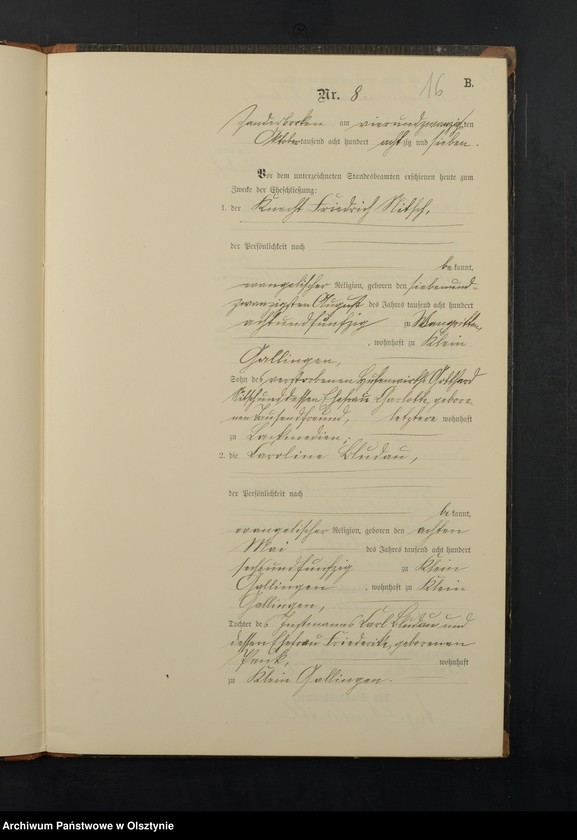 B.
16
Nr. 8
am vierundzwanzigsten
Oktober tausend acht hundert achtzig und sieben.
Vor dem unterzeichneten Standesbeamten erschienen heute zum
Zwecke der Eheschließung:
1. der Knecht Friedrich Nitsch,
der Persönlichkeit nach
bekannt,
evangelischer Religion, geboren den siebenund-
zwanzigsten August des Jahres tausend acht hundert
achtundfünfzig zu Wangritten
, wohnhaft zu Klein
Gallingen,
Sohn des verstorbenen Hufenwirths Gottfried
Nitsch und dessen Ehefrau Charlotte, gebore-
nen Tausendfreund, letztere wohnhaft
zu
2. die Caroline Bludau,
der Persönlichkeit nach
bekannt,
evangelischer Religion, geboren den achten
Mai des Jahres tausend acht hundert
sechsundfünfzig zu Klein
Gallingen, wohnhaft zu Klein
Gallingen,
Tochter des Instmanns Carl Bludau und
dessen Ehefrau Friederike, geborenen
wohnhaft
zu Klein Gallingen.
Archiwum Państwowe w Olsztynie